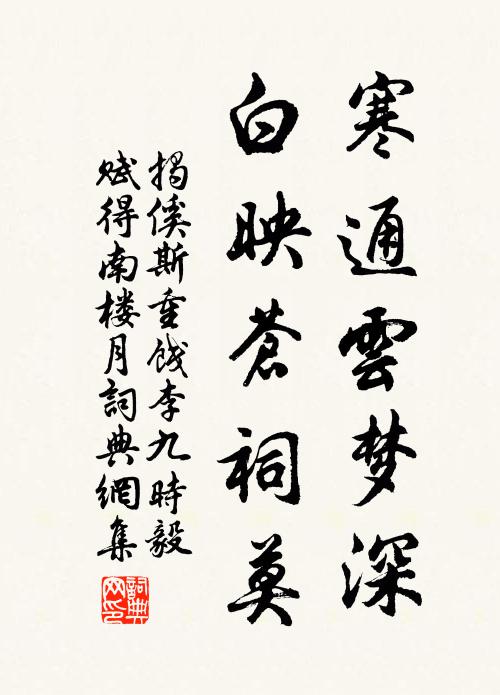 寒通雲梦深
白映蒼祠莫
揭傒斯重餞李九時毅
赋得南楼月詞典網集
詞典网印